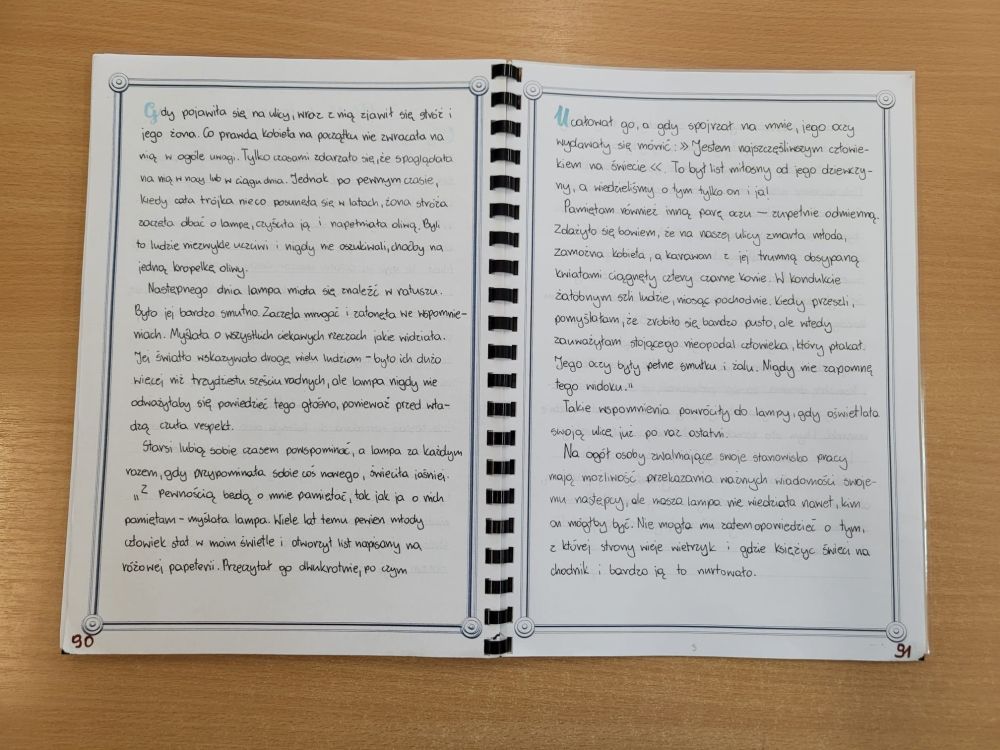 Gdy pojawiła się na ulicy, wraz z nią zjawił się stróż i
jego żona. Co prawda kobieta na początku nie zwracała na
nią w ogóle uwagi. Tylko czasami zdarzało się, że spoglądała
na nią w nocy lub w ciągu dnia. Jednak po pewnym czasie,
kiedy cała trójka nieco posunęła się w latach, żona stróża
zaczęła dbać o lampę, czyściła ją i napełniała oliwą. Byli
to ludzie niezwykle uczciwi i nigdy nie oszukiwali, choćby na
jedną kropelkę oliwy.
Następnego dnia lampa miała się znaleźć w ratuszu.
Było jej bardzo smutno. Zaczęła mrugać i zatonęła we wspomnie-
niach. Myślała o wszystkich ciekawych rzeczach jakie widziała.
Jej światło wskazywało drogę wielu ludziom - było ich dużo
więcej niż trzydziestu sześciu radnych, ale lampa nigdy nie
odważyłaby się powiedzieć tego głośno, ponieważ przed wła-
dzą czuła respekt.
Starsi lubią sobie czasem powspominać, a lampa za każdym
razem, gdy przypominała sobie coś nowego, świeciła jaśniej.
"Z pewnością będą o mnie pamiętać, tak jak ja o nich
pamiętam - myślała lampa. Wiele lat temu pewien młody
człowiek stał w moim świetle i otworzył list napisany na
różowej papeterii. Przeczytał go dwukrotnie, po czym
90
Ucałował go, a gdy spojrzał na mnie, jego oczy
wydawały się mówić: »Jestem najszczęśliwszym człowie-
kiem na świecie«. To był list miłosny od jego dziewczy-
ny, a wiedzieliśmy o tym tylko on i ja!
Pamiętam również inną parę oczu — zupełnie odmienną.
Zdażyło się bowiem, że na naszej ulicy zmarła młoda,
zamożna kobieta, a karawan z jej trumną obsypaną
kwiatami ciągnęły cztery czarne konie. W kondukcie
żałobnym szli ludzie, niosąc pochodnie. Kiedy przeszli,
pomyślałam, że zrobiło się bardzo pusto, ale wtedy
zauważyłam stojącego nieopodal człowieka, który płakał.
Jego oczy były pełne smutku i żalu. Nigdy nie zapomnę
tego widoku."
Takie wspomnienia powróciły do lampy, gdy oświetlała
swoją ulicę już po raz ostatni.
Na ogół osoby zwalniające swoje stanowisko pracy
mają możliwość przekazania ważnych wiadomości swoje-
mu następcy, ale nasza lampa nie wiedziała nawet, kim
on mógłby być. Nie mogła mu zatem opowiedzieć o tym,
z której strony wieje wietrzyk i gdzie księżyc świeci na
chodnik i bardzo ją to nurtowało.
91